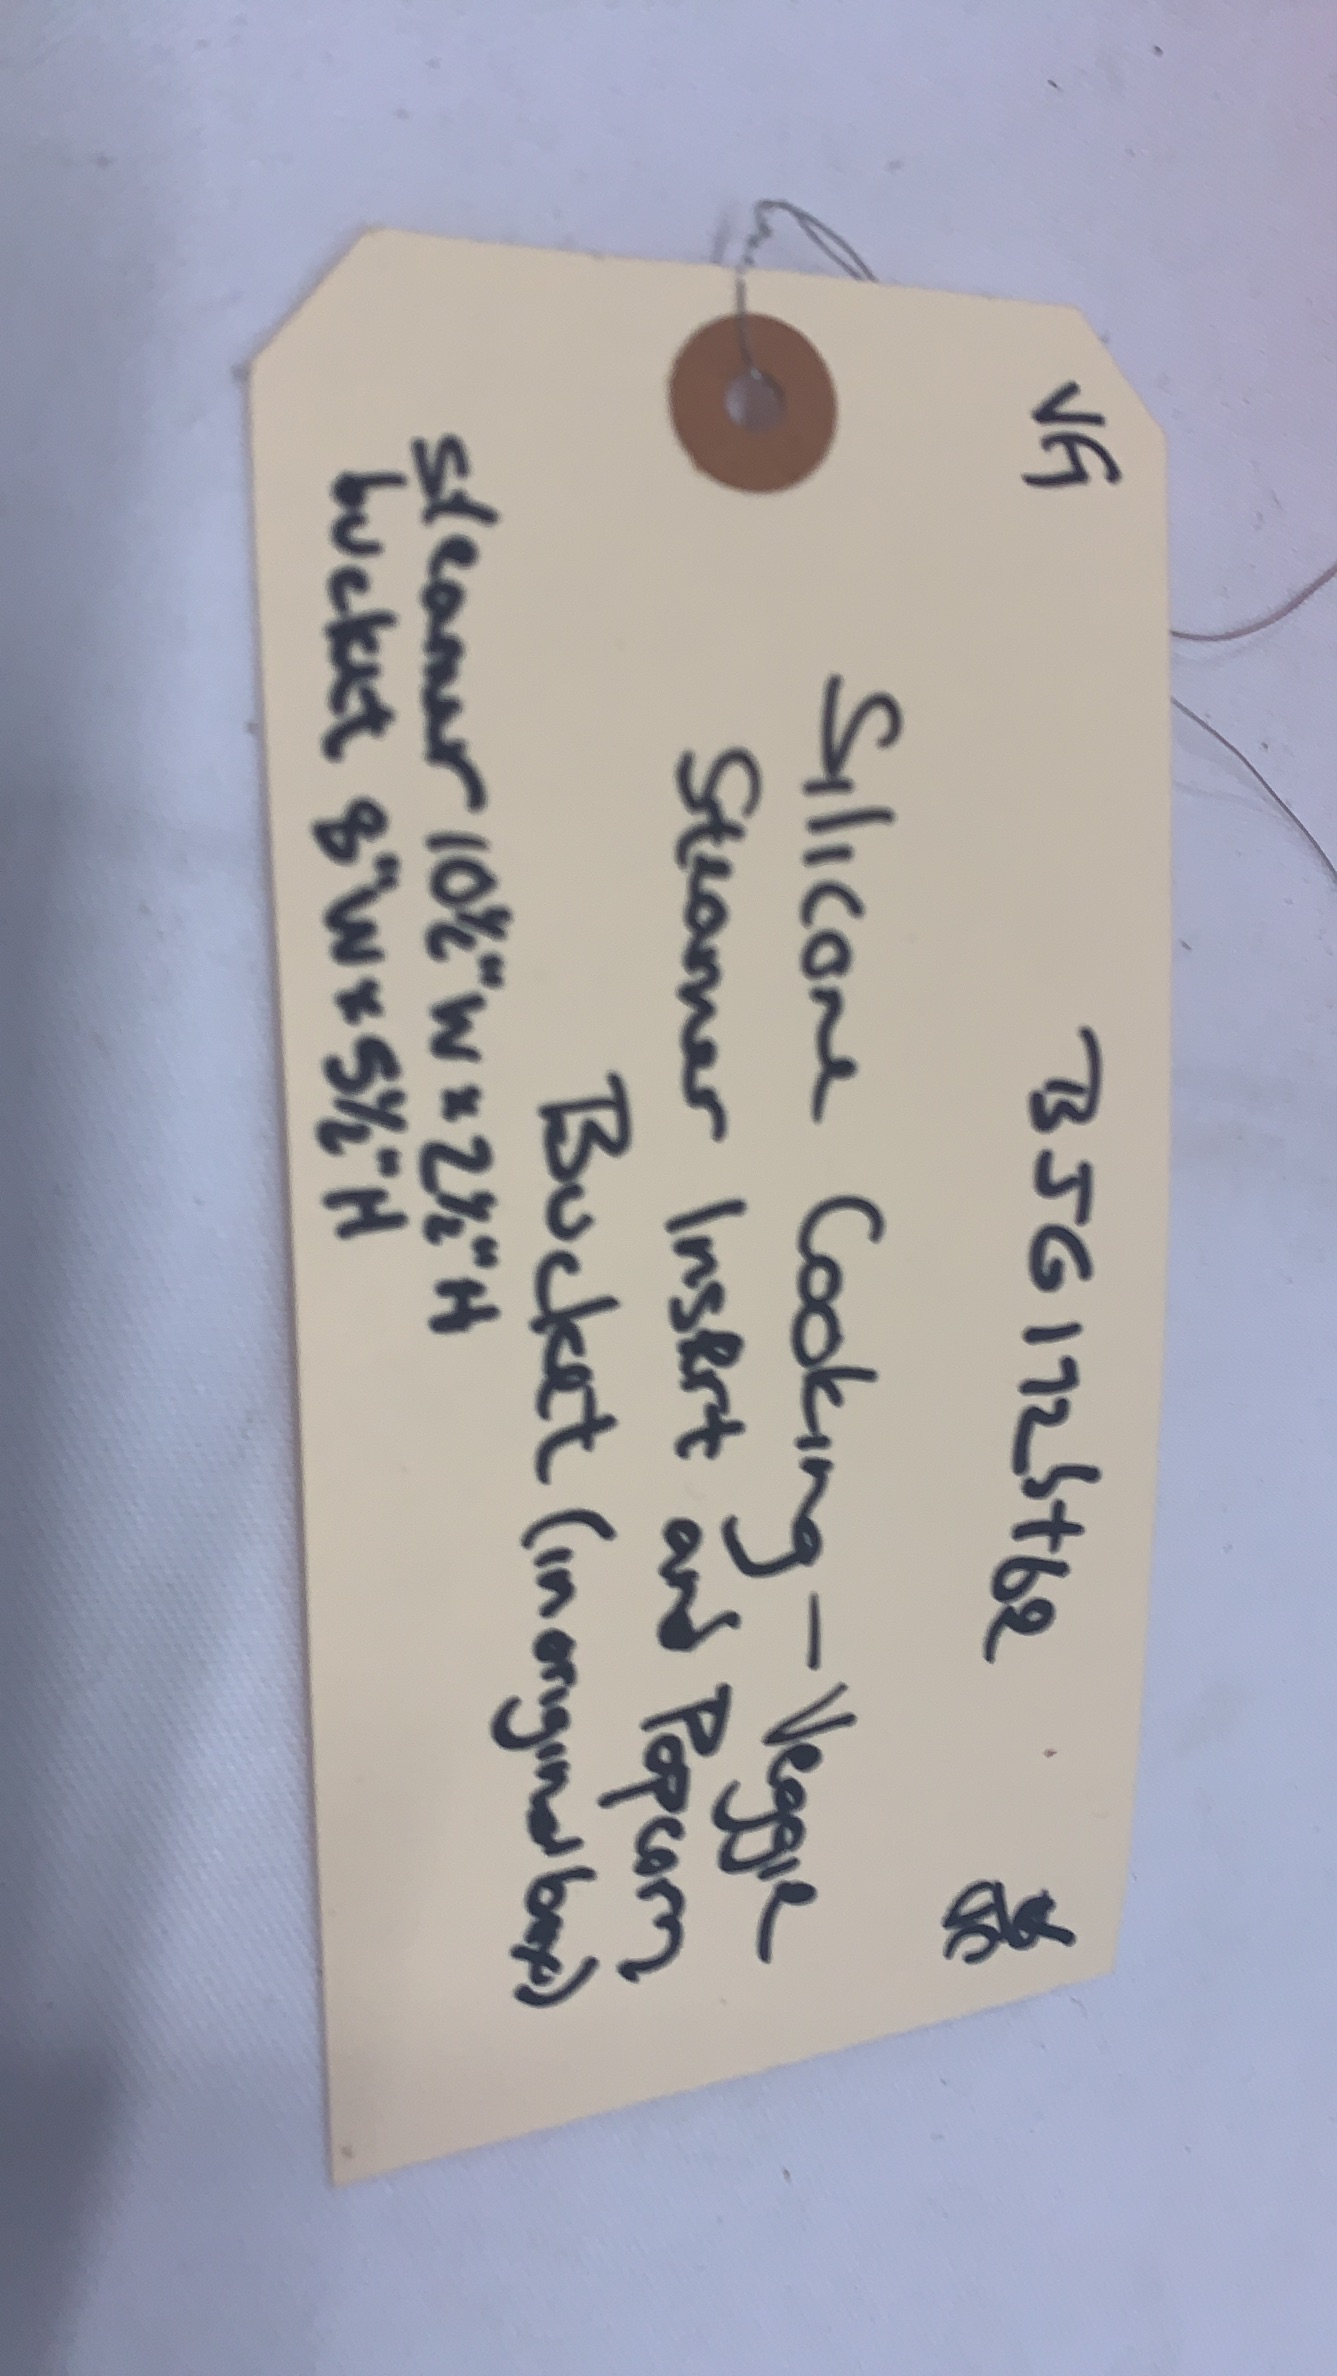 VG
BJG172
Silicone Cooking - Veggie
Steamer Insert and Popcorn
Bucket (in original box)
steamer 10½" W x 2½" H
bucket 8" W x 5½" H